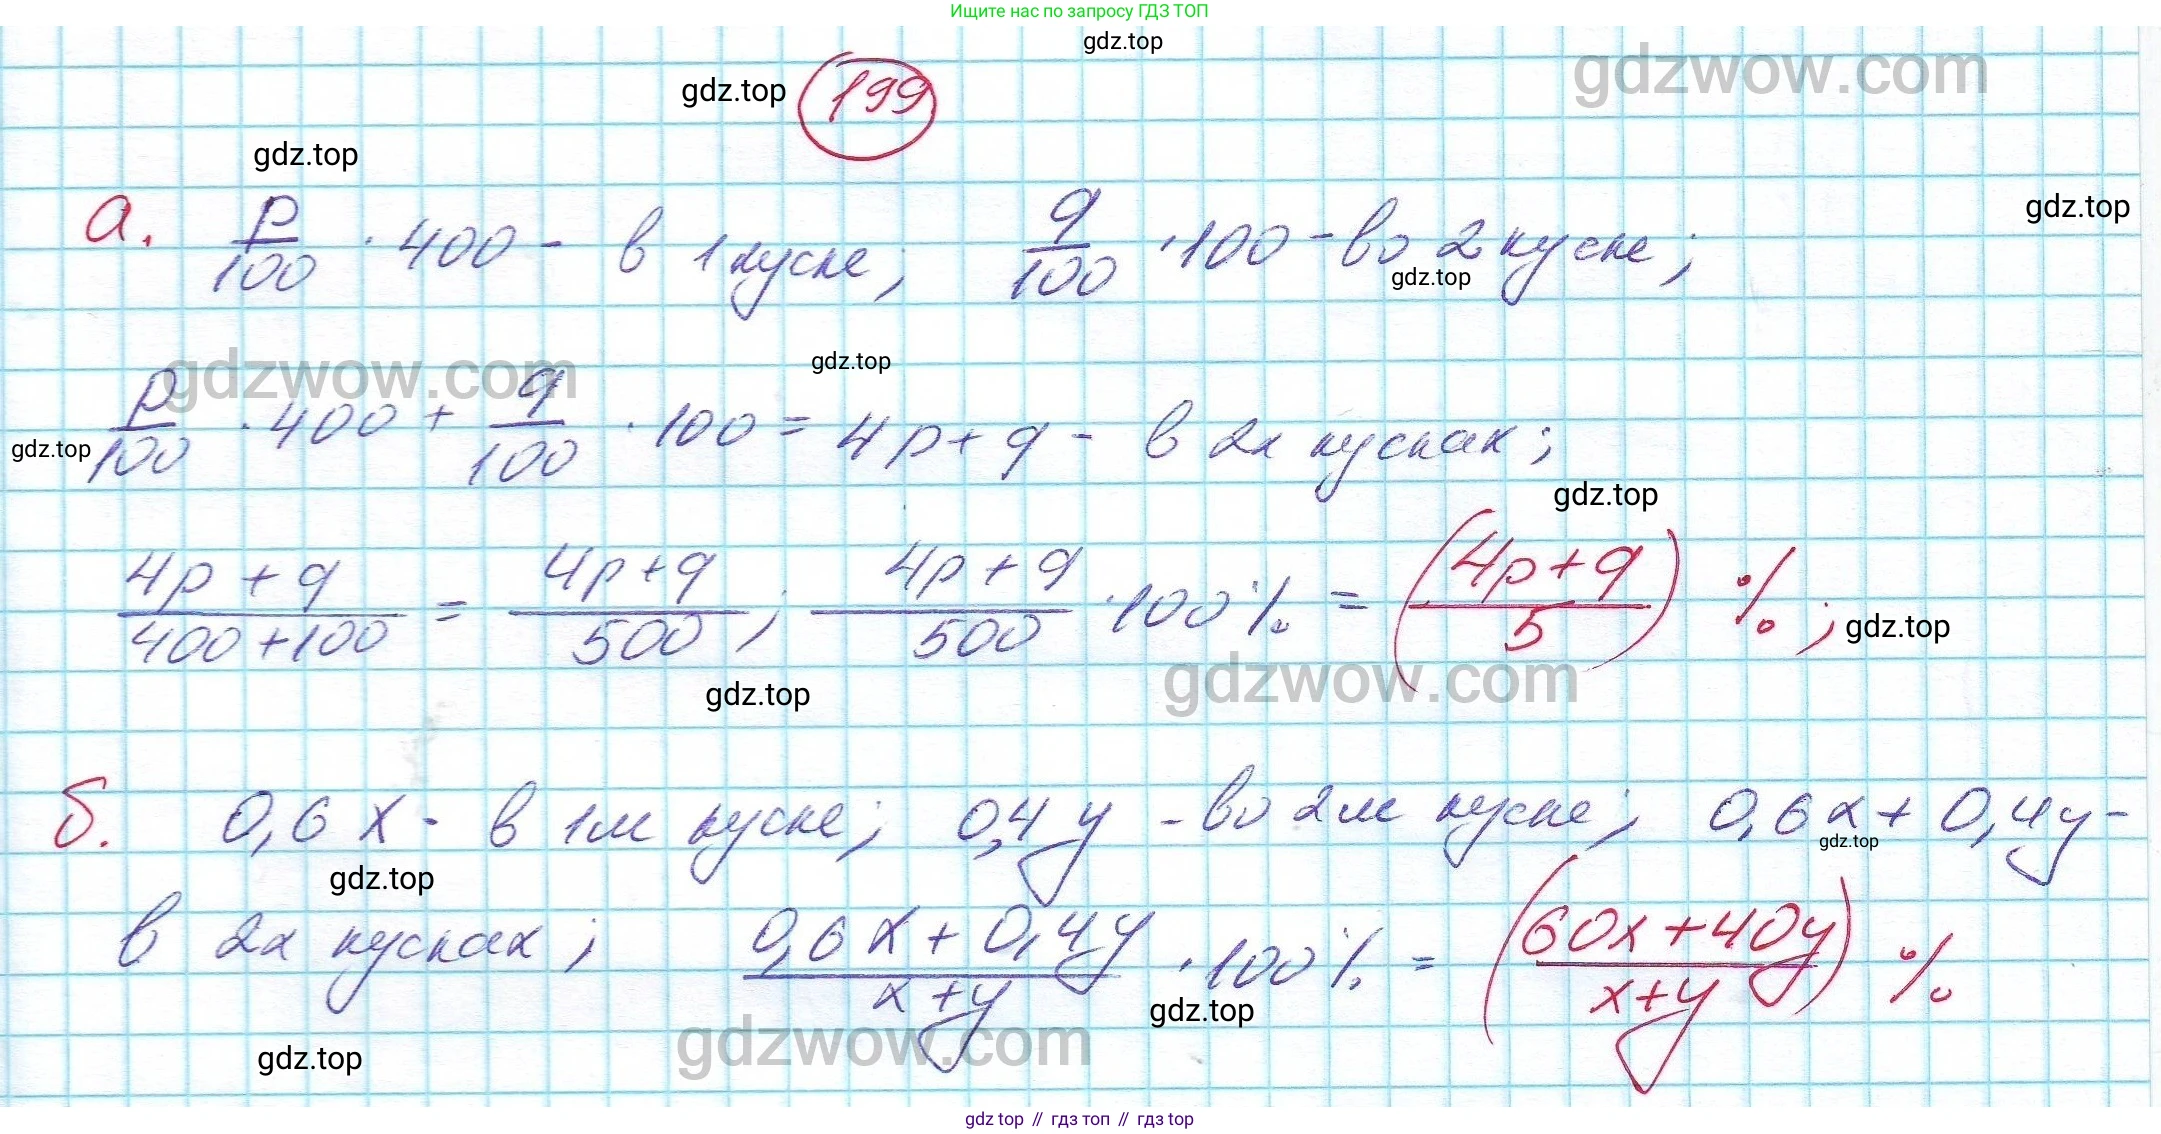 Ищите нас по запросу ГДЗ ТОП
gdz.top
gdzwow.com
gdz.top
199
gdz.top
gdz.top
а. p/100 · 400 - в 1 куске; q/100 · 100 - во 2 куске;
gdz.top
gdzwow.com
gdz.top
p/100 · 400 + q/100 · 100 = 4p + q - в 2х кусках;
gdz.top
gdz.top
(4p + q)/(400 + 100) = (4p + q)/500; (4p + q)/500 · 100% = ((4p + q)/5) %;
gdz.top
gdzwow.com
gdz.top
б. 0,6x - в 1м куске; 0,4y - во 2м куске; 0,6x + 0,4y -
gdz.top
gdz.top
в 2х кусках; (0,6x + 0,4y)/(x + y) · 100% = ((60x + 40y)/(x + y)) %
gdz.top
gdzwow.com
gdz.top
gdz top // гдз топ // гдз top